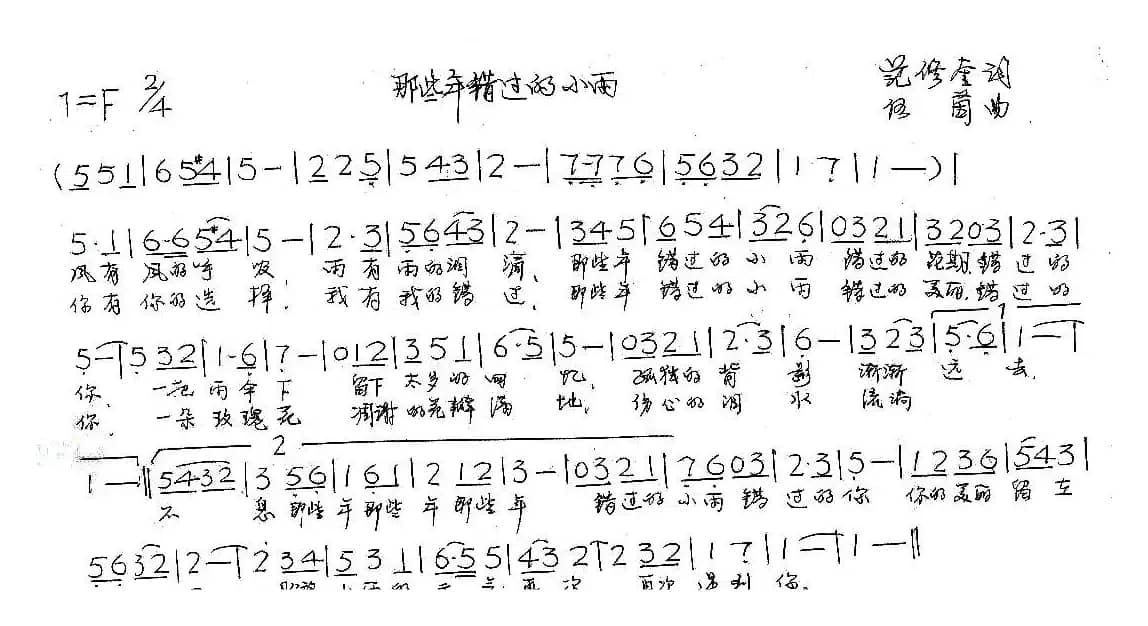 那些年错过的小雨
1=F 2/4
范修奎词
语 茵 曲
(551|65#4|5-|225|543|2-|7·776|5632|1·7|1—)|
5·1|6·65#4|5-|2·3|5643|2-|345|654|326|0321|3203|2·3|
风有 风的呼 吸 雨有雨的润 滴, 那些年 错过的小雨 错过的花期.错过的
你有你的选 择, 我有我的错 过, 那些年 错过的小雨 错过的美丽.错过的
5-|532|1·6|7-|012|351|6·5|5-|0321|2·3|6-|323|5·6|1—|
你, 一把雨伞下 留下 太多的回 忆, 孤独的背 影 渐渐 远 去.
你, 一朵玫瑰花 凋谢的花瓣满 地, 伤心的泪 水 流淌
2
1—‖5432|356|161|212|3-|0321|7603|2·3|5-|1236|543|
不 息 那些年那些年那些年 错过的小雨错过的你 你的美丽留在
5632|2—|234|531|6·55|432|232|17|1—|1—‖
再次 再次遇到你.